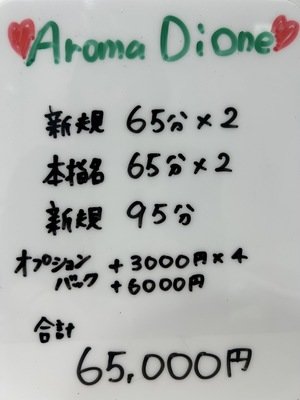 Aroma Dione
新規 65分×2
本指名 65分×2
新規 95分
オプション +3000円×4
バック +6000円
合計
65,000円